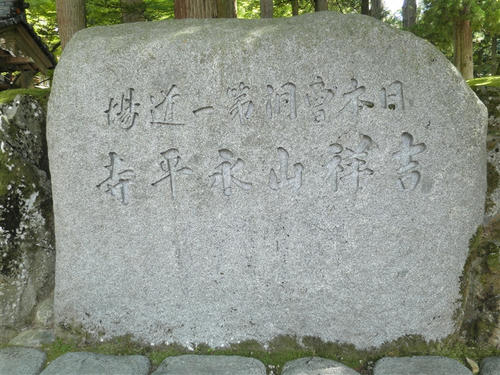 日本曹洞第一道場
吉祥山永平寺